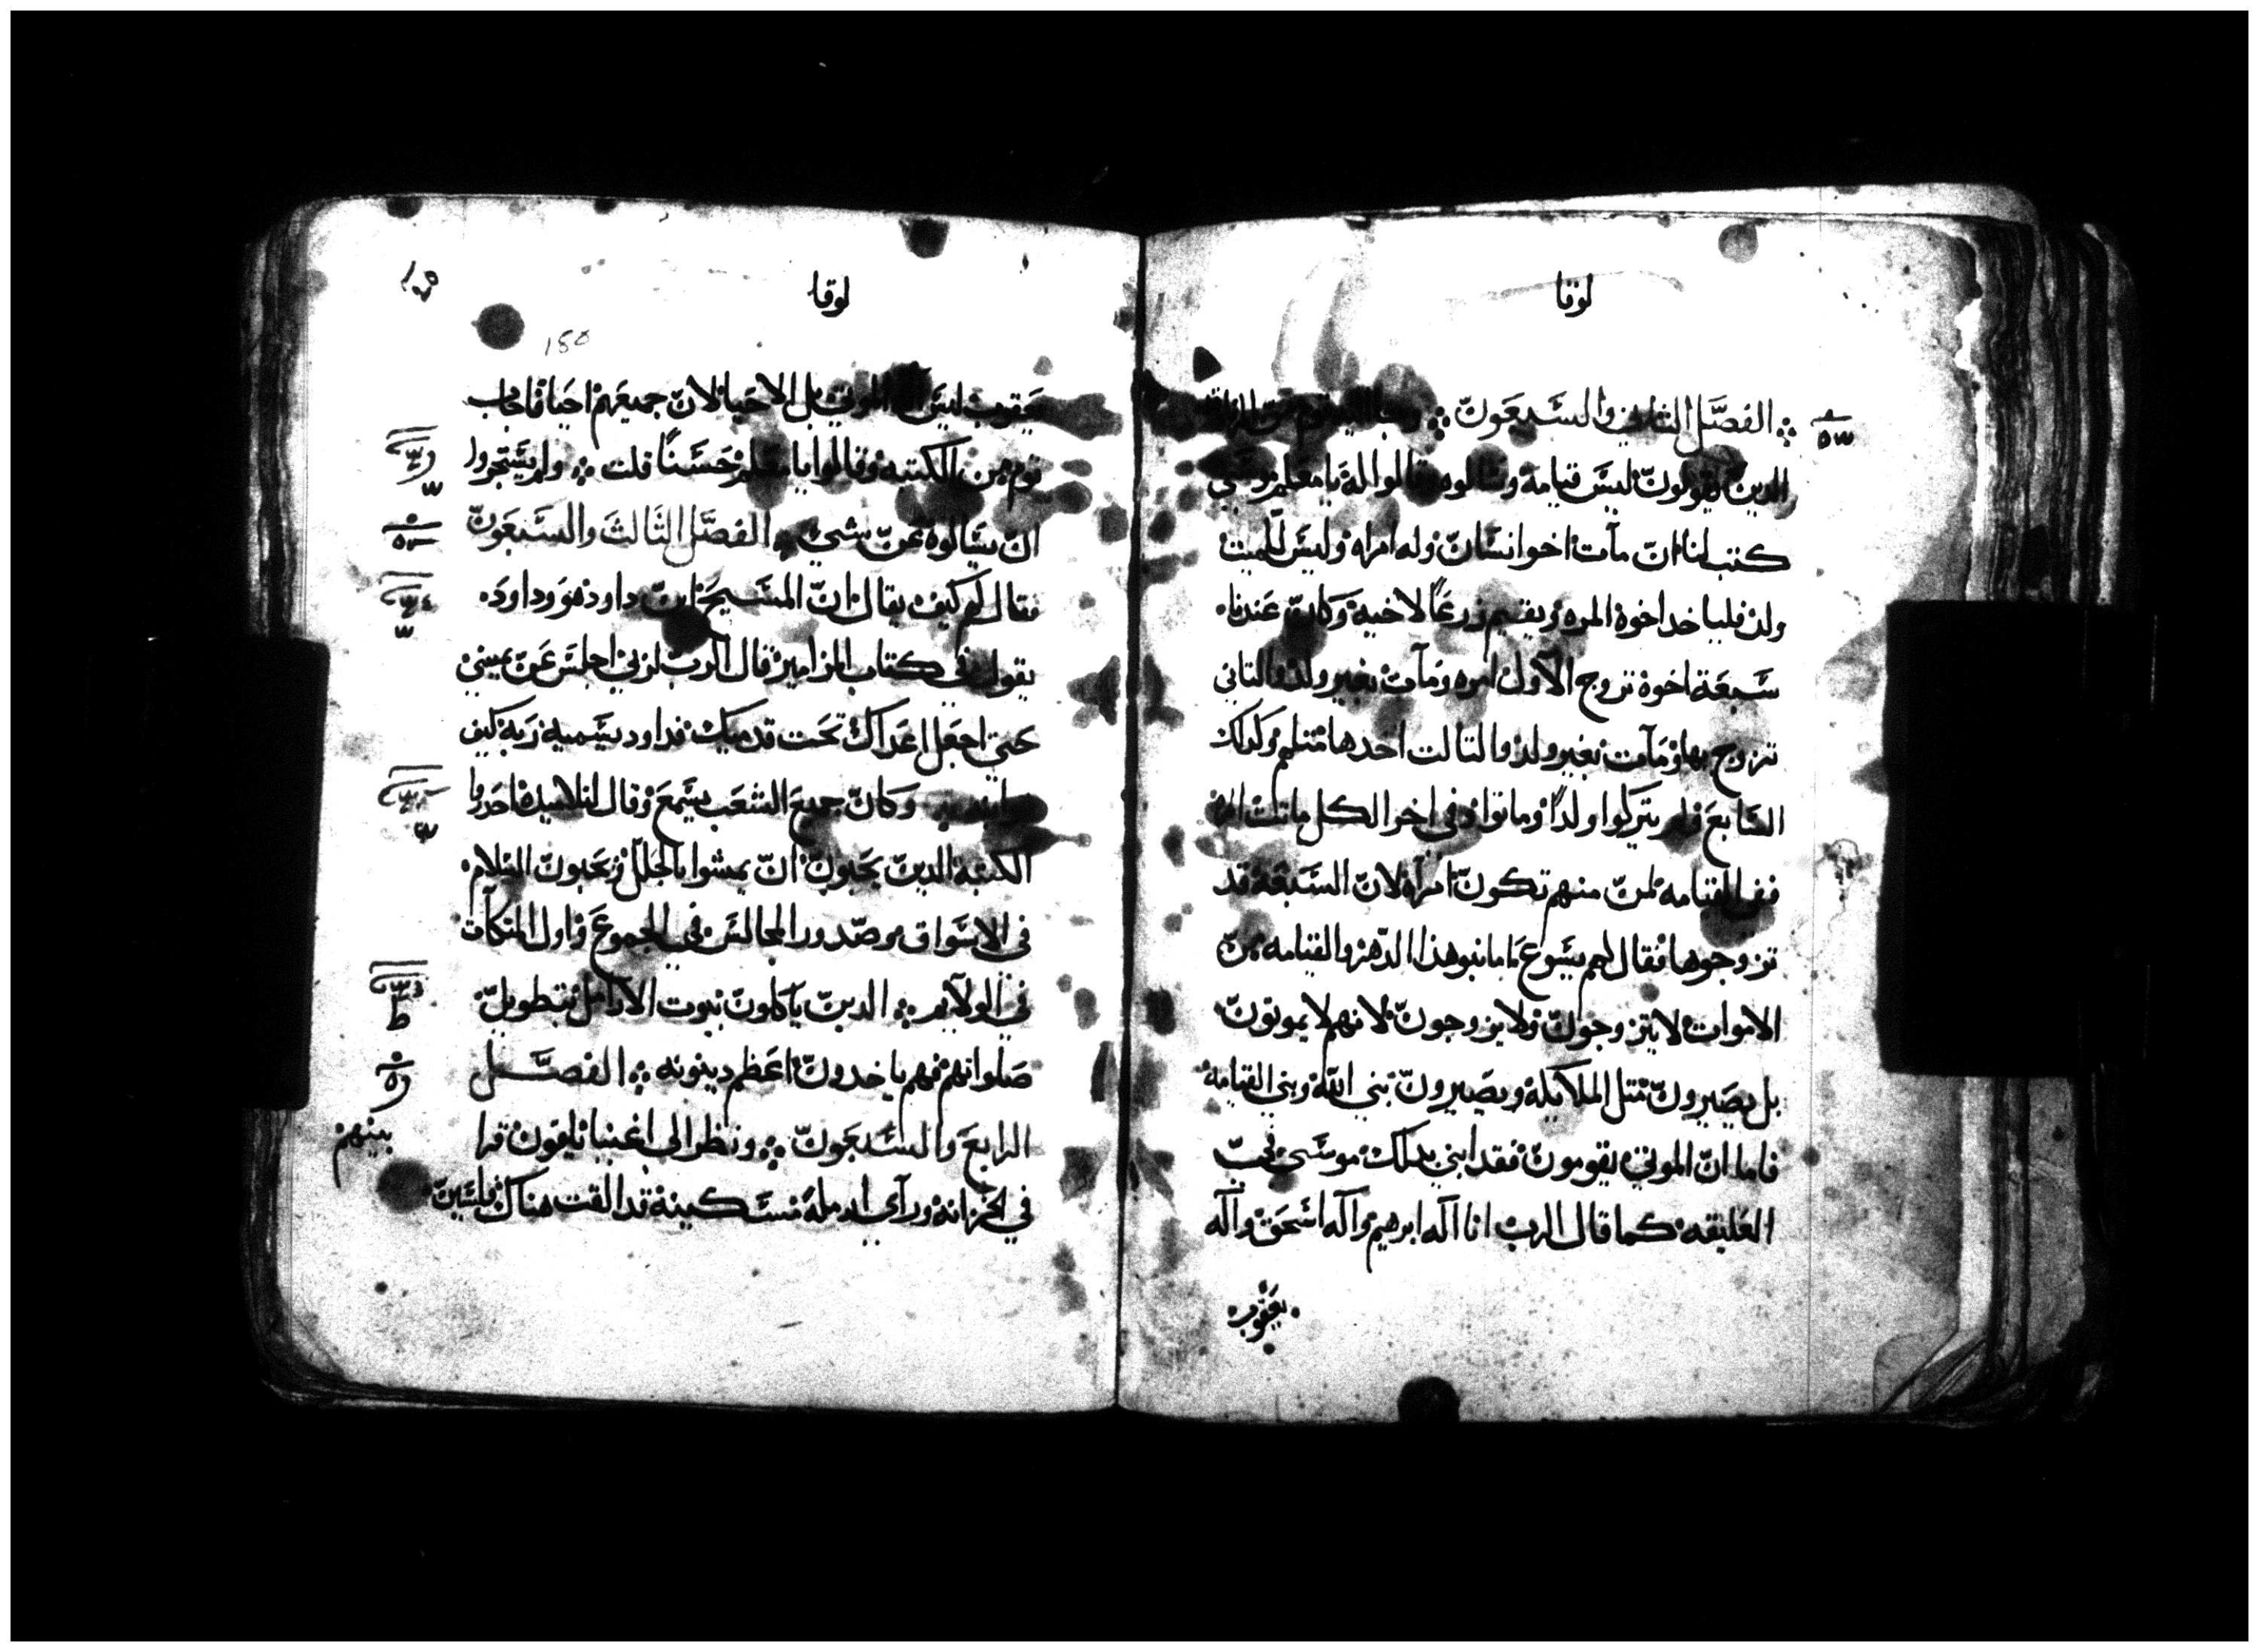 لوقا
الفصل الثاني والسبعون وجا اليه قوم من الزنادقه
الدين يقولون ليس قيامه وسالوه وقالوا له يا معلم موسي
كتب لنا ان مات اخو انسان وله امراه وليس للميت
ولد فلياخد اخوه المره ويقيم زرعًا لاخيه وكان عندنا
سبعة اخوة تزوج الاول امره ومات بغير ولد والتاني
تزوج بها ومات بغير ولد والتالت اخدها متلهم وكدلك
السابع ولم يتركوا ولدًا وماتوا وفي اخر الكل ماتت المراه
ففي القيامه لمن منهم تكون امراه لان السبعة قد
تزوجوها فقال لهم يسوع اما بنو هذا الدهر والقيامه من
الاموات لا يتزوجون ولا يزوجون لانهم لا يموتون
بل يصيرون متل الملايكة ويصيرون بني الله وبني القيامة
فاما ان الموتي يقومون فقد ابني بدلك موسي في
العليقه كما قال الرب انا اله ابرهيم واله اسحق واله
يعقوب
لوقا
180
يعقوب ليس الموتي بل الاحيا لان جميعهم احيا فاجاب
قوم من الكتبه وقالوا يا معلم حسنًا قلت ولم يستجروا
ان يسالوه عن شي الفصل الثالث والسبعون
فقال لهم كيف يقال ان المسيح ابن داود وهو داود
يقول في كتاب المزامير قال الرب لربي اجلس عن يميني
حتي اجعل اعداك تحت قدميك فداود يسميه ربه كيف
وكان جميع الشعب يسمع وقال لتلاميده احدروا
الكتبة الدين يحبون ان يمشوا بالحلل ويحبون السلام
في الاسواق وصدور المجالس في الجموع واول المتكات
في الولايم الدين ياكلون بيوت الارامل بتطويل
صلواتهم فهم ياخدون اعظم دينونه الفصل
الرابع والسبعون ونظر الي اغنيا يلقون قرا
بينهم
في الخزانه وراي ارملة مسكينة قد القت هناك فلسين